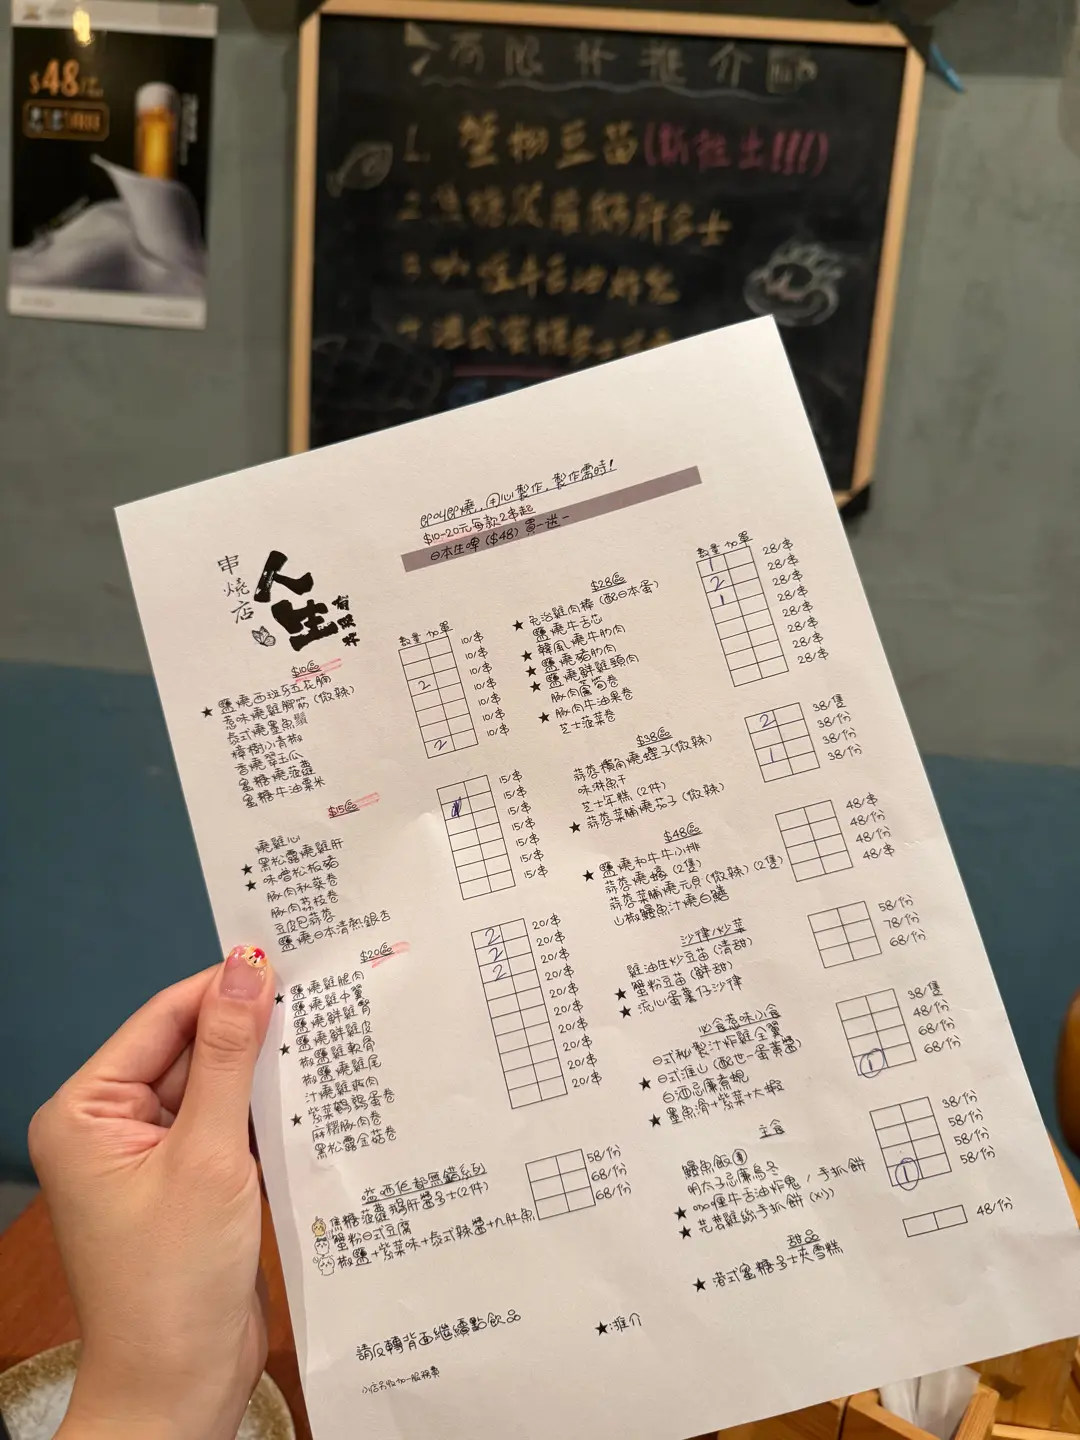 $48
有限杯推介
1. 蟹粉豆苗(新推出!!!)
2.焦糖菠蘿鵝肝多士
3.咖喱牛舌油炸鬼
4.港式蜜糖多士
即叫即燒,用心製作,製作需時!
$10-20元每款2串起
日本生啤($48)買一送一
串燒店
人生有限杯
數量 加單
$10區
★ 鹽燒西班牙五花腩 10/串
惹味燒雞腳筋(微辣) 10/串
泰式燒墨魚鬚 2 10/串
樟樹小青椒 10/串
香燒翠玉瓜 10/串
蜜糖燒菠蘿 10/串
蜜糖牛油粟米 2 10/串
$15區
燒雞心 15/串
★ 黑松露燒雞肝 1 15/串
★ 味噌松板豬 15/串
豚肉秋葵卷 15/串
豚肉荔枝卷 15/串
豆皮巴蒜蓉 15/串
鹽燒日本清熱銀杏 15/串
$20區
★ 鹽燒雞腿肉 2 20/串
鹽燒雞中翼 2 20/串
鹽燒鮮雞腎 2 20/串
★ 鹽燒鮮雞皮 20/串
椒鹽雞軟骨 20/串
椒鹽燒雞尾 20/串
汁燒雞頸肉 20/串
★ 紫菜鵪鶉蛋卷 20/串
麻糬豚肉卷 20/串
黑松露金菇卷 20/串
嗌西佢都無錯系列
焦糖菠蘿鵝肝醬多士(2件) 58/份
蟹粉日式豆腐 68/份
椒鹽+紫菜味+泰式辣醬+九肚魚 68/份
請反轉背面繼續點飲品
小店另收加一服務費
數量 加單
$28區
★ 免治雞肉棒(配日本蛋) 1 28/串
鹽燒牛舌芯 2 28/串
★ 韓風燒牛肋肉 1 28/串
★ 鹽燒豬肋肉 28/串
★ 鹽燒鮮雞頸肉 28/串
豚肉蘆筍卷 28/串
★ 豚肉牛油果卷 28/串
芝士菠菜卷 28/串
$38區
蒜蓉橫角燒蟶子(微辣) 2 38/隻
味淋魚干 38/份
芝士年糕(2件) 1 38/份
★ 蒜蓉菜脯燒茄子(微辣) 38/份
$48區
★ 鹽燒和牛牛小排 48/串
蒜蓉燒蠔(2隻) 48/份
蒜蓉菜脯燒元貝(微辣)(2隻) 48/份
山椒鰻魚汁燒白鱔 48/串
沙律/炒菜
雞油生炒豆苗(清甜) 58/份
★ 蟹粉豆苗(鮮甜) 78/份
★ 流心蛋薯仔沙律 68/份
必食惹味小食
日式秘製汁炸雞全翼 38/隻
★ 日式淮山(配世一蛋黃醬) 48/份
白酒忌廉煮蜆 68/份
★ 墨魚滑+紫菜+大蝦 1 68/份
主食
鰻魚飯 38/份
明太子忌廉烏冬 58/份
★ 咖喱牛舌油炸鬼/手抓餅 58/份
★ 芫茜雞絲手抓餅(x1) 1 58/份
甜品
★ 港式蜜糖多士夾雪糕 48/份
★:推介